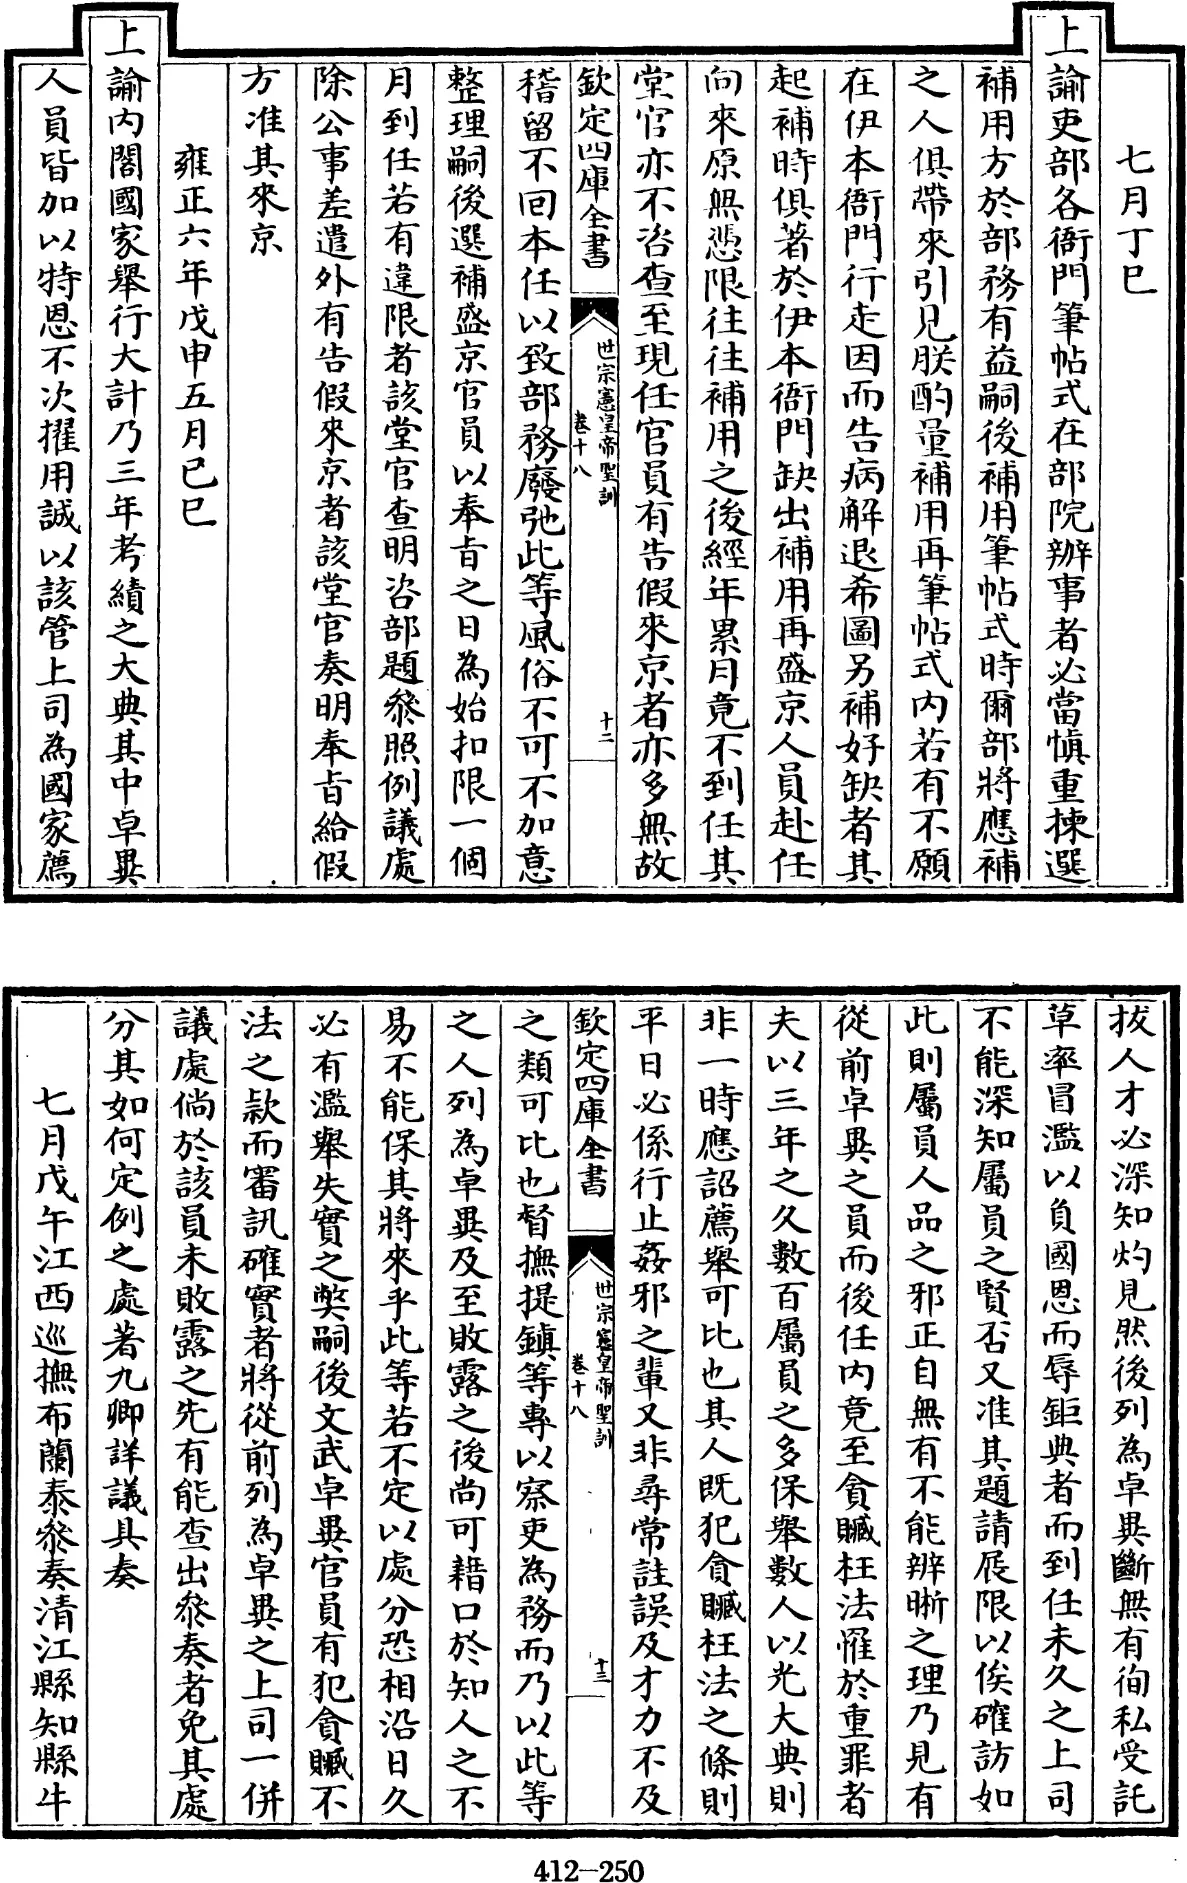 七月丁巳
上諭吏部各衙門筆帖式在部院辦事者必當慎重揀選
補用方於部務有益嗣後補用筆帖式時爾部將應補
之人俱帶來引見朕酌量補用再筆帖式内若有不願
在伊本衙門行走因而告病解退希圖另補好缺者其
起補時俱著於伊本衙門缺出補用再盛京人員赴任
向來原無憑限往往補用之後經年累月竟不到任其
堂官亦不咨查至現任官員有告假來京者亦多無故
欽定四庫全書
世宗憲皇帝聖訓
卷十八
十二
稽留不回本任以致部務廢弛此等風俗不可不加意
整理嗣後選補盛京官員以奉旨之日為始扣限一個
月到任若有違限者該堂官查明咨部題叅照例議處
除公事差遣外有告假來京者該堂官奏明奉旨給假
方准其來京
雍正六年戊申五月己巳
上諭内閣國家舉行大計乃三年考績之大典其中卓異
人員皆加以特恩不次擢用誠以該管上司為國家薦
拔人才必深知灼見然後列為卓異斷無有徇私受託
草率冒濫以負國恩而辱鉅典者而到任未久之上司
不能深知屬員之賢否又准其題請展限以俟確訪如
此則屬員人品之邪正自無有不能辨晰之理乃見有
從前卓異之員而後任内竟至貪贓枉法罹於重罪者
夫以三年之久數百屬員之多保舉數人以光大典則
非一時應詔薦舉可比也其人既犯貪贓枉法之條則
平日必係行止姦邪之輩又非尋常詿誤及才力不及
欽定四庫全書
世宗憲皇帝聖訓
卷十八
十三
之類可比也督撫提鎮等專以察吏為務而乃以此等
之人列為卓異及至敗露之後尚可藉口於知人之不
易不能保其將來乎此等若不定以處分恐相沿日久
必有濫舉失實之弊嗣後文武卓異官員有犯貪贓不
法之款而審訊確實者將從前列為卓異之上司一併
議處倘於該員未敗露之先有能查出叅奏者免其處
分其如何定例之處著九卿詳議具奏
七月戊午江西巡撫布蘭泰叅奏清江縣知縣牛
412-250